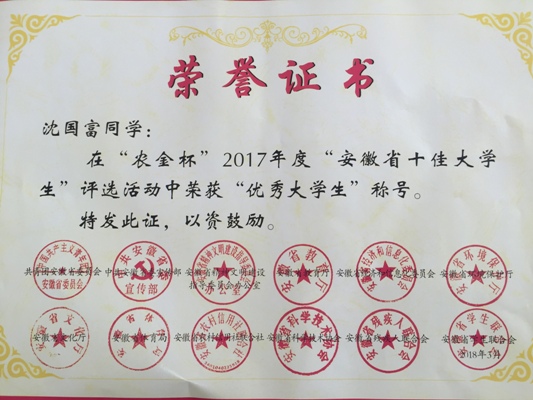 荣誉证书
沈国富同学:
在“农金杯”2017年度“安徽省十佳大学
生”评选活动中荣获“优秀大学生”称号。
特发此证,以资鼓励。
共青团安徽省委员会 中共安徽省委宣传部 安徽省精神文明建设 安徽省教育厅 安徽省经济和信息化委员会 安徽省环境保护厅
指导委员会办公室
安徽省文化厅 安徽省体育局 安徽省农村信用社联合社 安徽省科学技术协会 安徽省残疾人联合会 安徽省学生联合会
2018年3月